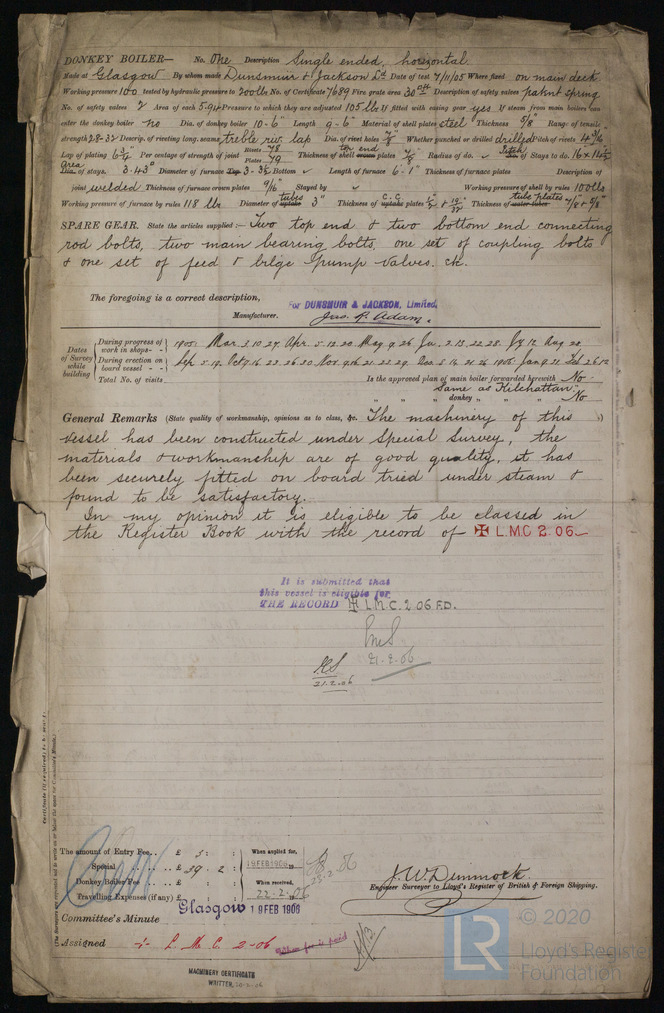 DONKEY BOILER— No. One Description Single ended, horizontal.
Made at Glasgow By whom made Dunsmuir & Jackson Ld Date of test 7/11/05 Where fixed on main deck
Working pressure 100 tested by hydraulic pressure to 200 lbs No. of Certificate 7689 Fire grate area 30 Description of safety valves patent spring
No. of safety valves 2 Area of each 5.94 Pressure to which they are adjusted 105 lbs If fitted with easing gear yes If steam from main boilers can
enter the donkey boiler no Dia. of donkey boiler 10-6" Length 9-6" Material of shell plates steel Thickness 5/8" Range of tensile
strength 28-32 Descrip. of riveting long. seams treble riv. lap Dia. of rivet holes 7/8" Whether punched or drilled drilled Pitch of rivets
Lap of plating Per centage of strength of joint Rivets 78 Plates 79 Thickness of shell crown plates Radius of do. Pitch of Stays to do.
Area Dia. of stays. 3.43 Diameter of furnace Top 3-3 Bottom Length of furnace 6-1" Thickness of furnace plates Description of
joint welded Thickness of furnace crown plates 9/16" Stayed by Working pressure of shell by rules 100 lbs
Working pressure of furnace by rules 118 lbs Diameter of tubes uptake 3" Thickness of C.C. uptake plates Thickness of tube plates water tubes 7/8 & 5/8"
SPARE GEAR. State the articles supplied:— Two top end & two bottom end connecting
rod bolts, two main bearing bolts, one set of coupling bolts
& one set of feed & bilge pump valves. &c.
The foregoing is a correct description,
For DUNSMUIR & JACKSON, Limited.
Manufacturer. Jas. R. Adam.
Dates of Survey while building
During progress of work in shops-- 1905: Mar. 3. 10. 27. Apr. 5. 12. 20. May 9. 26 Ju. 2. 13. 22. 28. Jy 12. Aug 22.
During erection on board vessel-- Sep. 5. 19. Oct 9. 16. 23. 26. 30 Nov. 9. 16. 21. 22. 29. Dec. 5. 14. 21. 26 1906: Jan 9. 21. Feb
Total No. of visits
Is the approved plan of main boiler forwarded herewith No
Same as "Kilchattan"
" " " donkey " " " No
General Remarks (State quality of workmanship, opinions as to class, &c. The machinery of this
vessel has been constructed under Special Survey, the
materials & workmanship are of good quality, it has
been securely fitted on board tried under steam &
found to be satisfactory.
In my opinion it is eligible to be classed in
the Register Book with the record of ✠ L.M.C 2.06.
It is submitted that
this vessel is eligible for
THE RECORD ✠ L.M.C. 2.06 F.D.
21.2.06
21.2.06
The amount of Entry Fee.. £ 3 : :
When applied for,
Special £ 39 . 2 :
19 FEB 1906
Donkey Boiler Fee £ : :
When received,
Travelling Expenses (if any) £ : :
22.2.06
J.W. Dimmock.
Engineer Surveyor to Lloyd's Register of British & Foreign Shipping.
Committee's Minute Glasgow 19 FEB 1906
Assigned + L. M. C. 2-06
MACHINERY CERTIFICATE
WRITTEN.
LR
© 2020
Lloyd's Register
Foundation